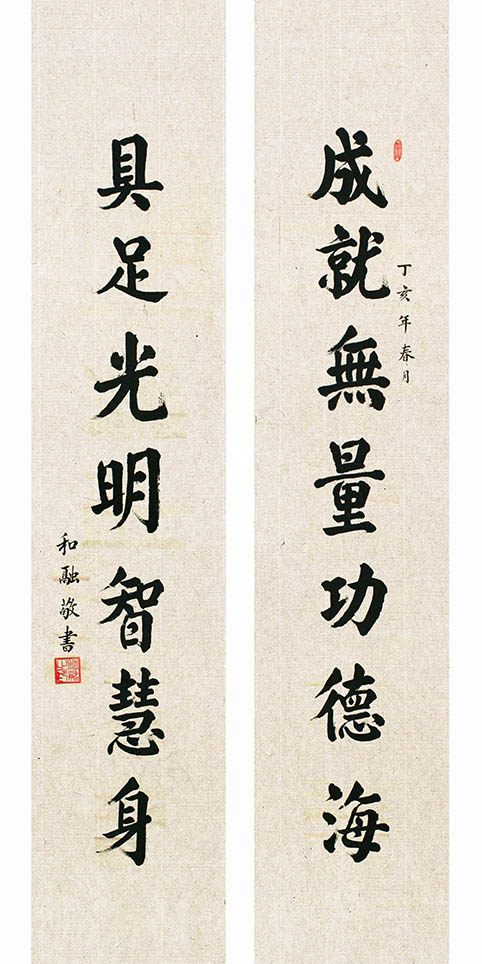 成就無量功德海
丁亥年春月
具足光明智慧身
和融敬書